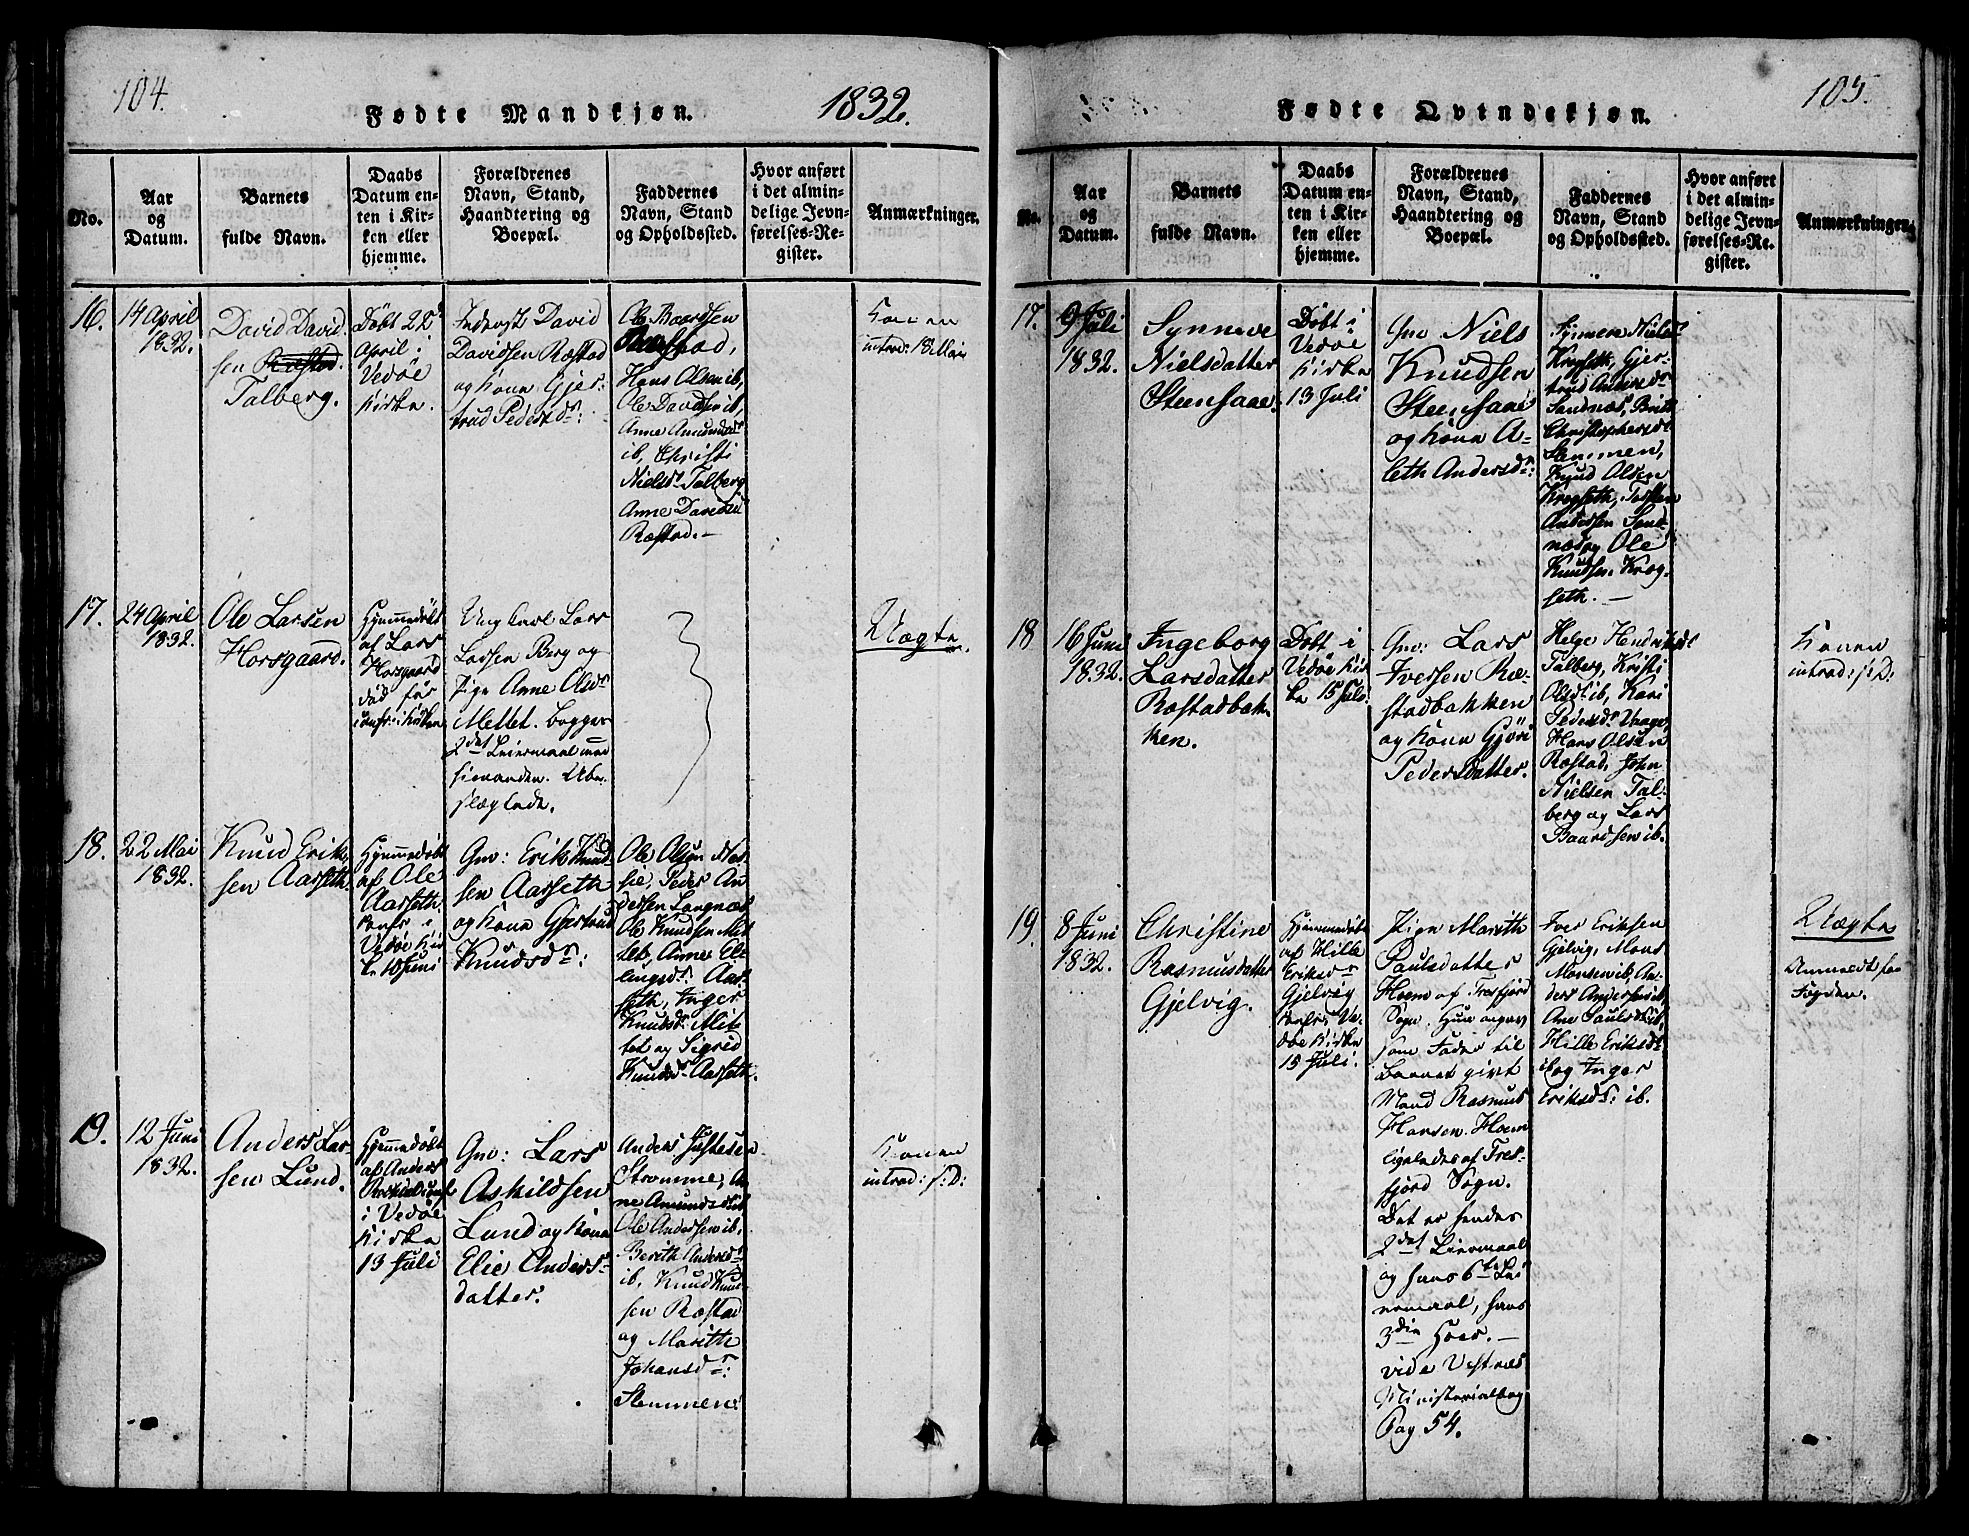 104.
Fødte Mandkjøn.
1832.
No.
Aar
og
Datum.
Barnets
fulde Navn.
Daabs
Datum en-
ten i Kir-
ken eller
hjemme.
Forældrenes
Navn, Stand,
Haandtering og
Boepæl.
Faddernes
Navn, Stand
og Opholdssted.
Hvor anført
i det almin-
delige Jevn-
førelses-Re-
gister.
Anmærkninger.
16.
14 April
1832.
David David-
sen
Talberg.
Døbt 22d
April i
Vedøe
Kirke.
Inderst David
Davidsen Røstad
og Kone Gjer-
trud Pedersdr:
Ole Baardsen
Røstad,
Hans Olsen ib,
Ole Davidsen ib,
Anne Amundsdr
ib, Christi
Nielsdr Talberg
Anne Davidsdr
Røstad.
Konen
introd: 18 Mai
17.
24 April
1832.
Ole Larsen
Horsgaard.
Hjemmedøbt
af Lars
Horsgaard
død før
conf: i Kirken
Ungkarl Lars
Larsen Berg og
Pige Anne Olsdr
Mettet. begges
2det Leiermaal med
hinanden. Ube-
slægtede.
Uægte.
18.
22 Mai
1832.
Knud Erik-
sen Aarseth.
Hjemmedøbt
af Ole
Aarseth.
conf: i
Vedøe Kir
ke 10 Juni
Gm: Erik Knud-
sen Aarseth
og Kone Gjertrud
Knudsdr:
Ole Olsen
Peder An
dersen Langnæs
Ole Knudsen Mit-
tet, Anne El-
lingsdr Aar-
seth, Inger
Knudsdr Mit-
tet og Sigrid
Knudsdr Aarseth.
19.
12 Juni
1832.
Anders Lar-
sen Lund.
Hjemmedøbt
af Anders
i Vedøe
Kirke
13 Juli
Gm: Lars
Askildsen
Lund og Kone
Elie Anders-
datter.
Anders Justesen
Strømme, An-
ne Amundsdr ib
Ole Andersen ib.
Berith Andersdr
ib, Knud Knud-
sen Røstad
og Marithe
Johansdr:
Stemmen.
Konen
introd: s: D:
105.
Fødte Qvindekjøn.
No.
Aar
og
Datum.
Barnets
fulde Navn.
Daabs
Datum en-
ten i Kir-
ken eller
hjemme.
Forældrenes
Navn, Stand,
Haandtering og
Boepæl.
Faddernes
Navn, Stand
og Opholdssted.
Hvor anført
i det almin-
delige Jevn-
førelses-Re-
gister.
Anmærkninger.
17.
9 Juli
1832.
Synneve
Nielsdatter
Steensaae.
Døbt i
Vedøe
Kirke
13 Juli
Gm Niels
Knudsen
Steensaae
og Kone A-
leth Andersdr:
Synneve Nielsdr
Krogseth, Gjer-
trud Andersdr
Sandnæs, Britt
Christophersdr
Stemmen,
Knud Olsen
Krogseth, Torsten
Andersen Sand-
næs og Ole
Knudsen Krog-
seth.
18
16 Juni
1832.
Ingeborg
Larsdatter
Røstadbak-
ken.
Døbt i
Vedøe Kir
ke 15 Juli.
Gm: Lars
Iversen Rø-
stadbakken
og Kone Gjøri
Pedersdatter.
Helge Hendriksdr
Talberg, Kristi
Olsdr ib, Kari
Pedersdr
Hans Olsen
Røstad, John
Nielsen Tal-
berg og Lars
Baardsen ib.
Konen
introd: s: D:
19.
8 Juni
1832.
Christine
Rasmusdatter
Gjelvig.
Hjemmedøbt
af Hille
Eriksdr
Gjelvig
conf: Ve-
døe Kirke
15 Juli.
Pige Marith
Paulsdatter
Hoem af Tresfjord
Sogn. Hun angav
som Fader til
Barnet givt
Mand Rasmus
Hansen Hoem
ligeledes af Tres-
fjord Sogn.
Det er hendes
2det Leiermaal
og hans 6te Lei
ermaal, hans
3die Hoer.
vide Vestnæs
Ministerialbog
Pag 54.
Iver Eriksen
Gjelvig, Mons
Monsen ib, An-
ders Andersen ib,
Ane Paulsdr ib,
Hille Eriksdr
ib og Inger
Eriksdr: ib.
Uægte
Anmeldt for
Fogden.